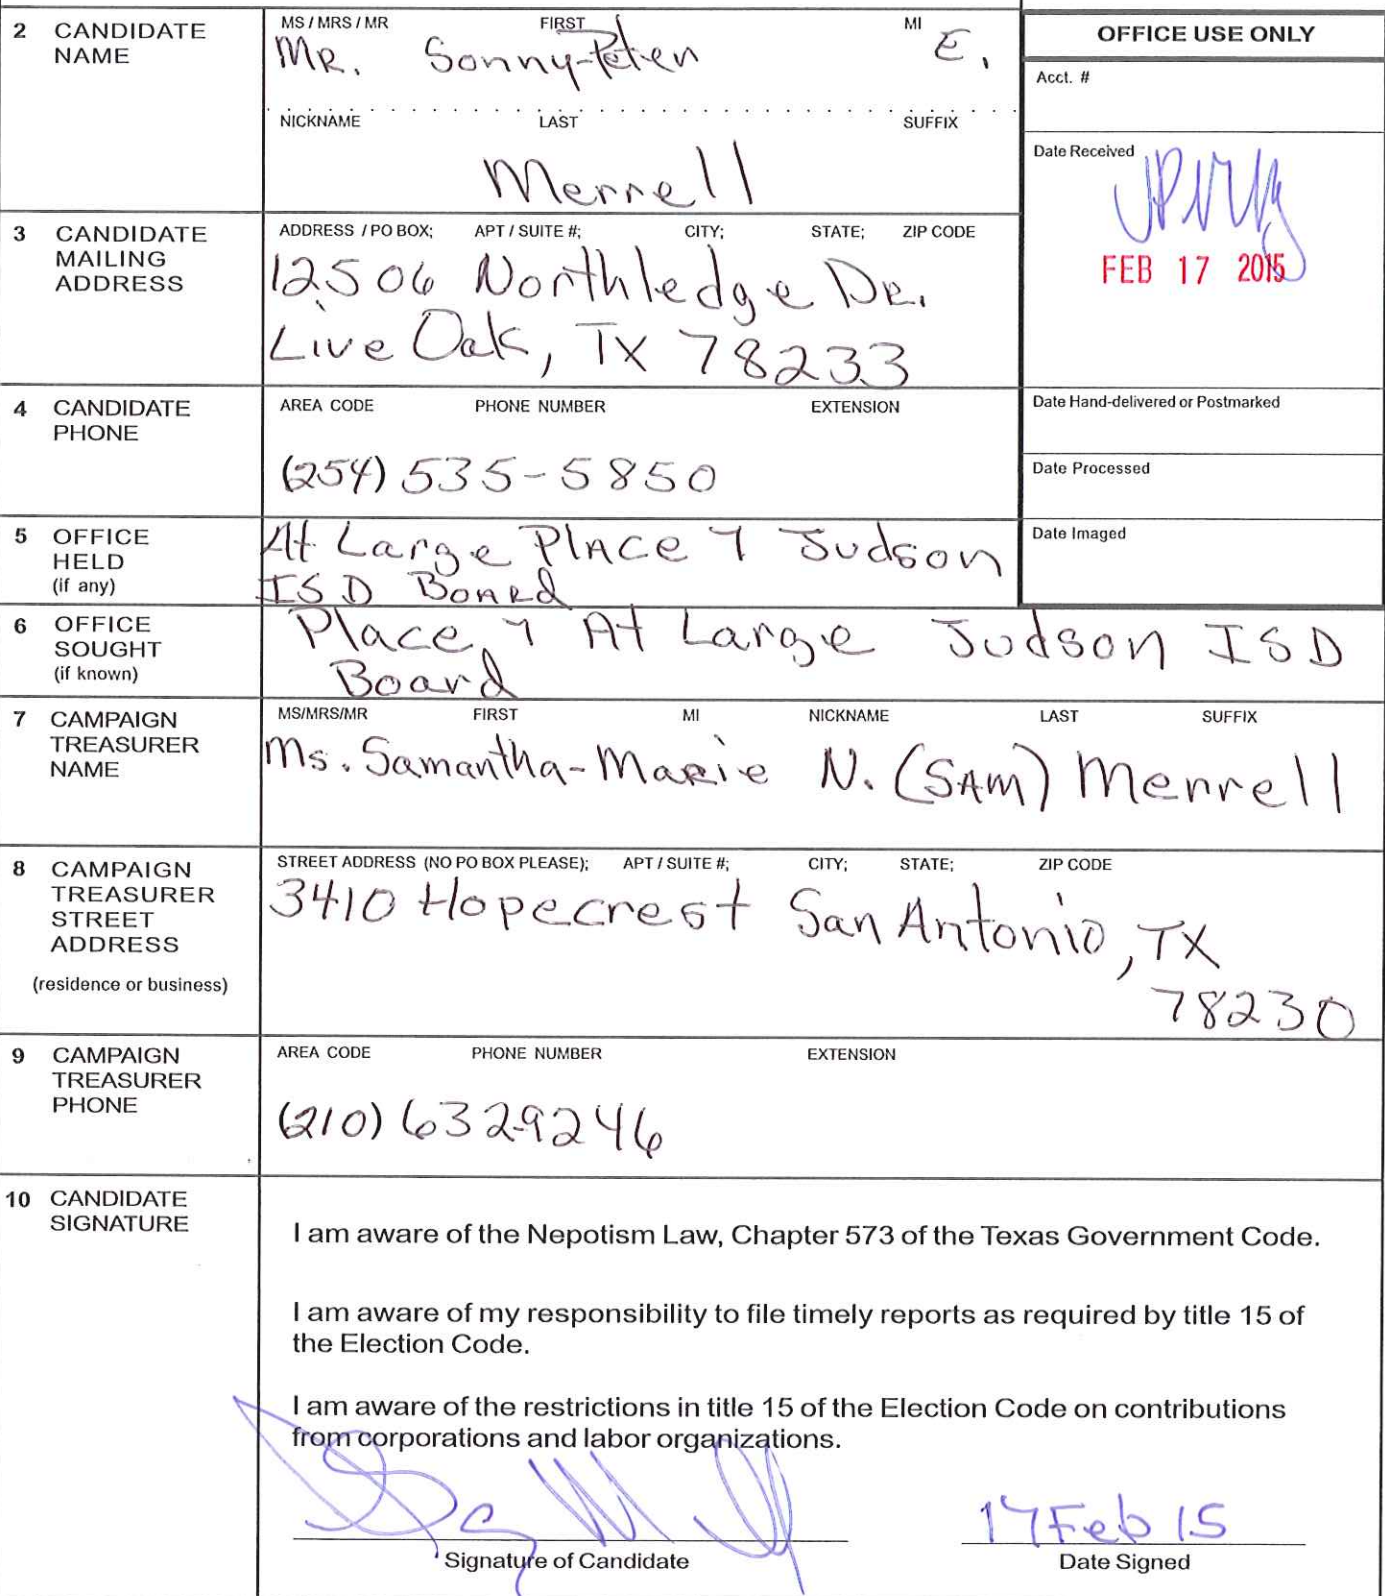 2 CANDIDATE NAME
MS / MRS / MR FIRST MI
Mr. Sonny-Peter E.
NICKNAME LAST SUFFIX
Merrell
OFFICE USE ONLY
Acct. #
Date Received
FEB 17 2015
Date Hand-delivered or Postmarked
Date Processed
Date Imaged
3 CANDIDATE MAILING ADDRESS
ADDRESS / PO BOX; APT / SUITE #; CITY; STATE; ZIP CODE
12506 Northledge Dr.
Live Oak, TX 78233
4 CANDIDATE PHONE
AREA CODE PHONE NUMBER EXTENSION
(254) 535-5850
5 OFFICE HELD (if any)
At Large Place 7 Judson
ISD Board
6 OFFICE SOUGHT (if known)
Place 7 At Large Judson ISD
Board
7 CAMPAIGN TREASURER NAME
MS/MRS/MR FIRST MI NICKNAME LAST SUFFIX
Ms. Samantha-Marie N. (SAM) Merrell
8 CAMPAIGN TREASURER STREET ADDRESS
(residence or business)
STREET ADDRESS (NO PO BOX PLEASE); APT / SUITE #; CITY; STATE; ZIP CODE
3410 Hopecrest San Antonio, TX
78230
9 CAMPAIGN TREASURER PHONE
AREA CODE PHONE NUMBER EXTENSION
(210) 632-9246
10 CANDIDATE SIGNATURE
I am aware of the Nepotism Law, Chapter 573 of the Texas Government Code.
I am aware of my responsibility to file timely reports as required by title 15 of
the Election Code.
I am aware of the restrictions in title 15 of the Election Code on contributions
from corporations and labor organizations.
17 Feb 15
Signature of Candidate Date Signed